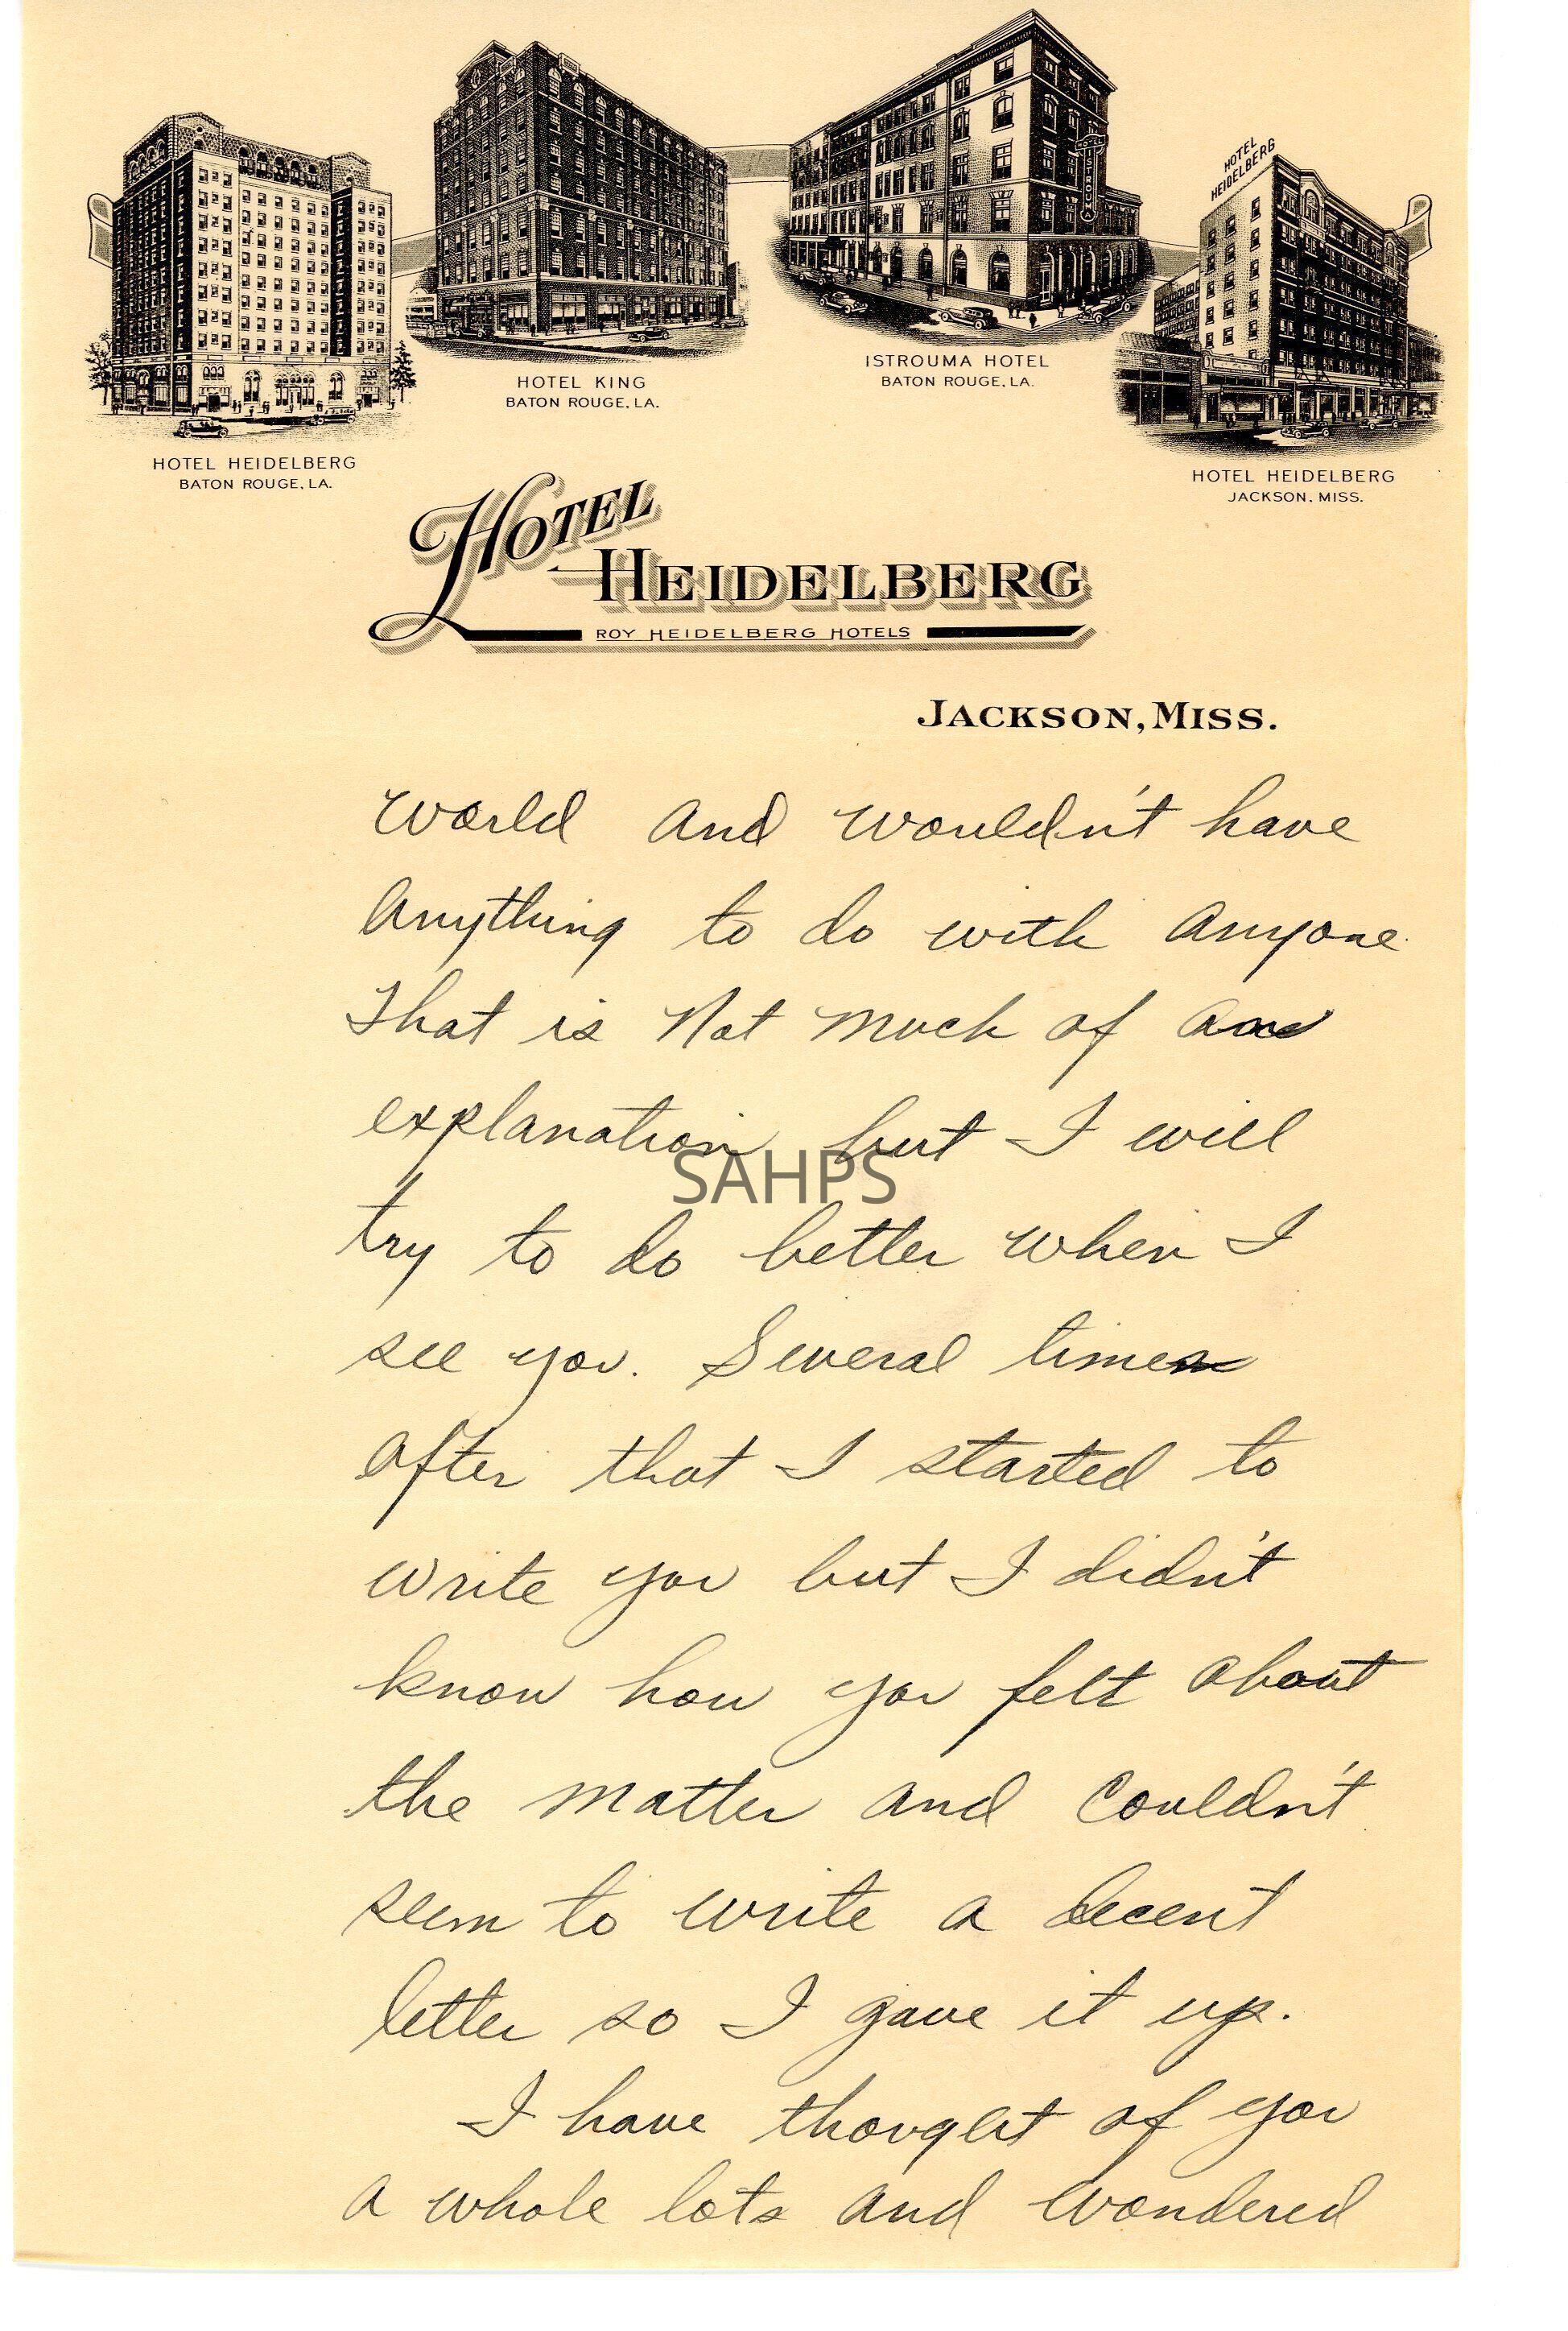 HOTEL HEIDELBERG
BATON ROUGE, LA.
HOTEL KING
BATON ROUGE, LA.
ISTROUMA
ISTROUMA HOTEL
BATON ROUGE, LA.
HOTEL
HEIDELBERG
HOTEL HEIDELBERG
JACKSON, MISS.
HOTEL
HEIDELBERG
ROY HEIDELBERG HOTELS
JACKSON, MISS.
World and wouldn't have
anything to do with anyone.
That is not much of an
explanation but I will
SAHPS
try to do better when I
see you. Several times
after that I started to
write you but I didn't
know how you felt about
the matter and couldn't
seem to write a decent
letter so I gave it up.
I have thought of you
a whole lots and wondered